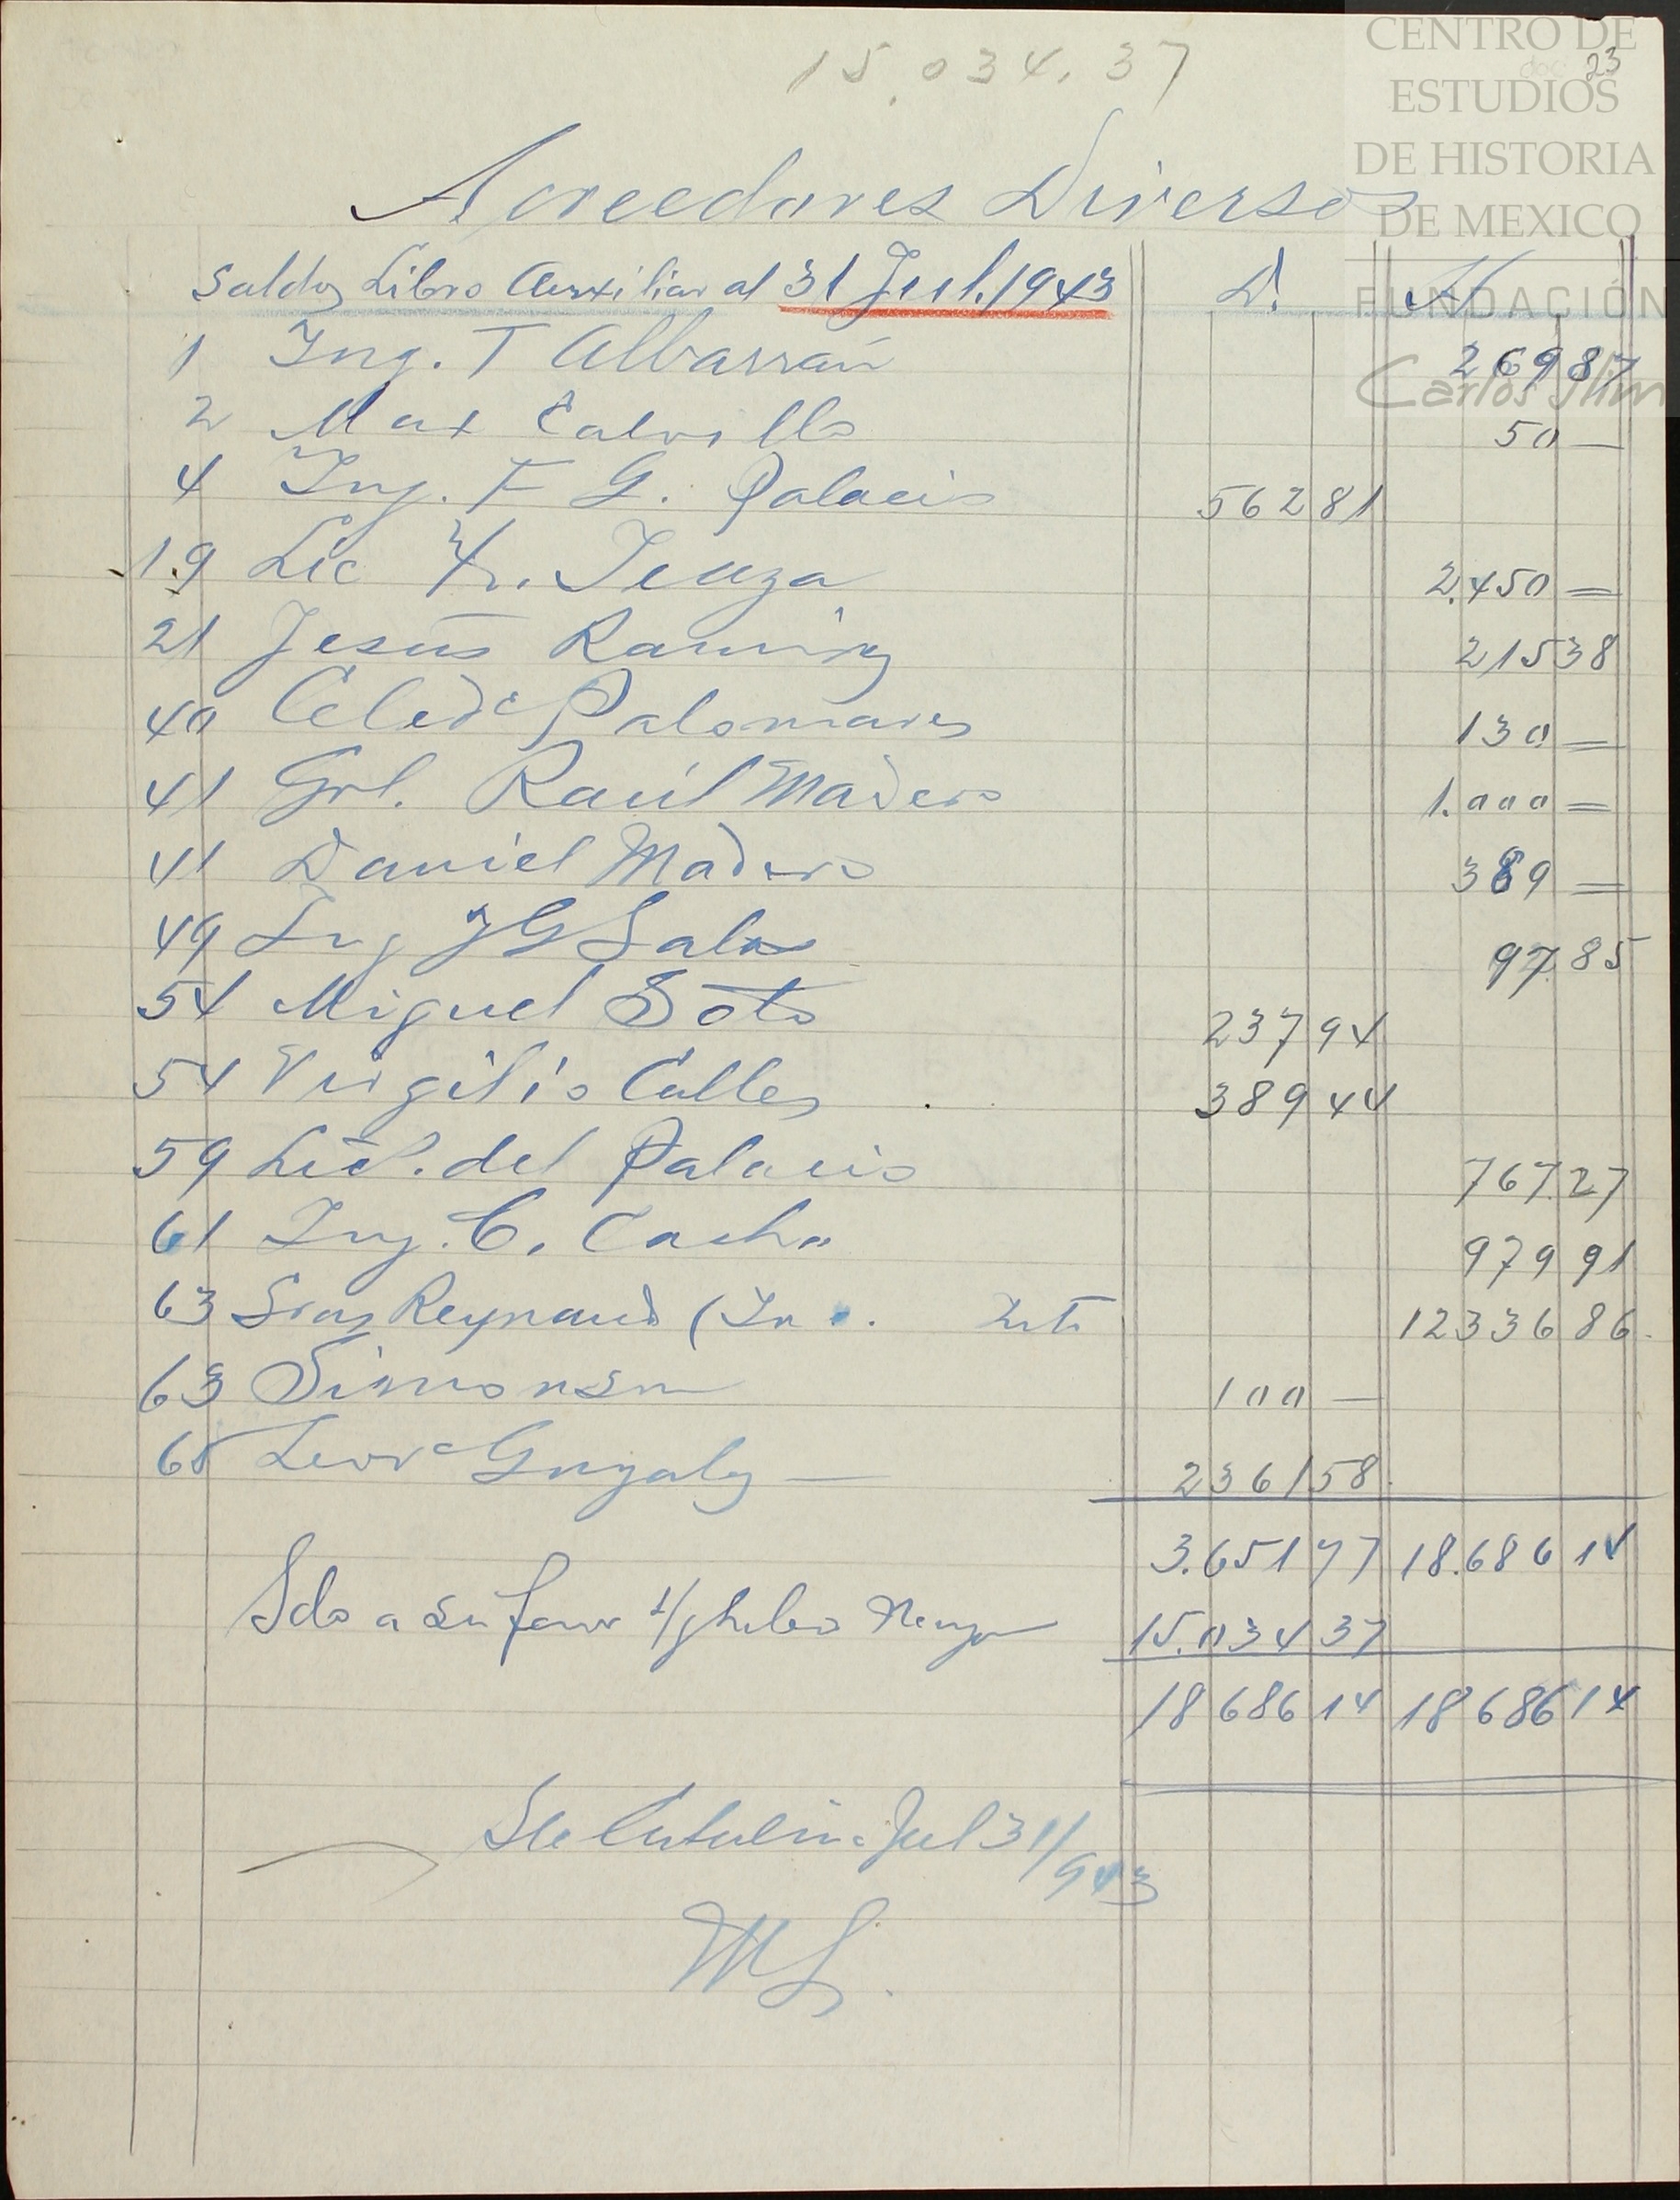 15.034.37
23
CENTRO DE
ESTUDIOS
DE HISTORIA
DE MEXICO
FUNDACIÓN
Carlos Slim
Acreedores Diversos
Saldos Libro Auxiliar al 31 Jul. 1943 D. H
1 Ing. T Albarrán 269 87
2 Max Calvillo 50 —
4 Ing. F G. Palacio 562 81
19 Lic 2.450 =
21 Jesús Ramirez 215 38
40 Celedo Palomares 130 =
41 Grl. Raúl Madero 1.000 =
41 Daniel Madero 389 =
49 Ing J G Salas 97.85
54 Miguel Soto 237 94
54 Virgilio Calles 389 44
59 Lic. del Palacio 767.27
61 Ing. C. Cacho 979 91
63 Sras Reynaud ( 12336 86
63 Simonsen 100 —
65 Gnzalez — 2361 58
3.651 77 18.686 14
Sdo a su favor 15.034 37
18686 14 18686 14
Sta Catalina Jul 31/943
ML.